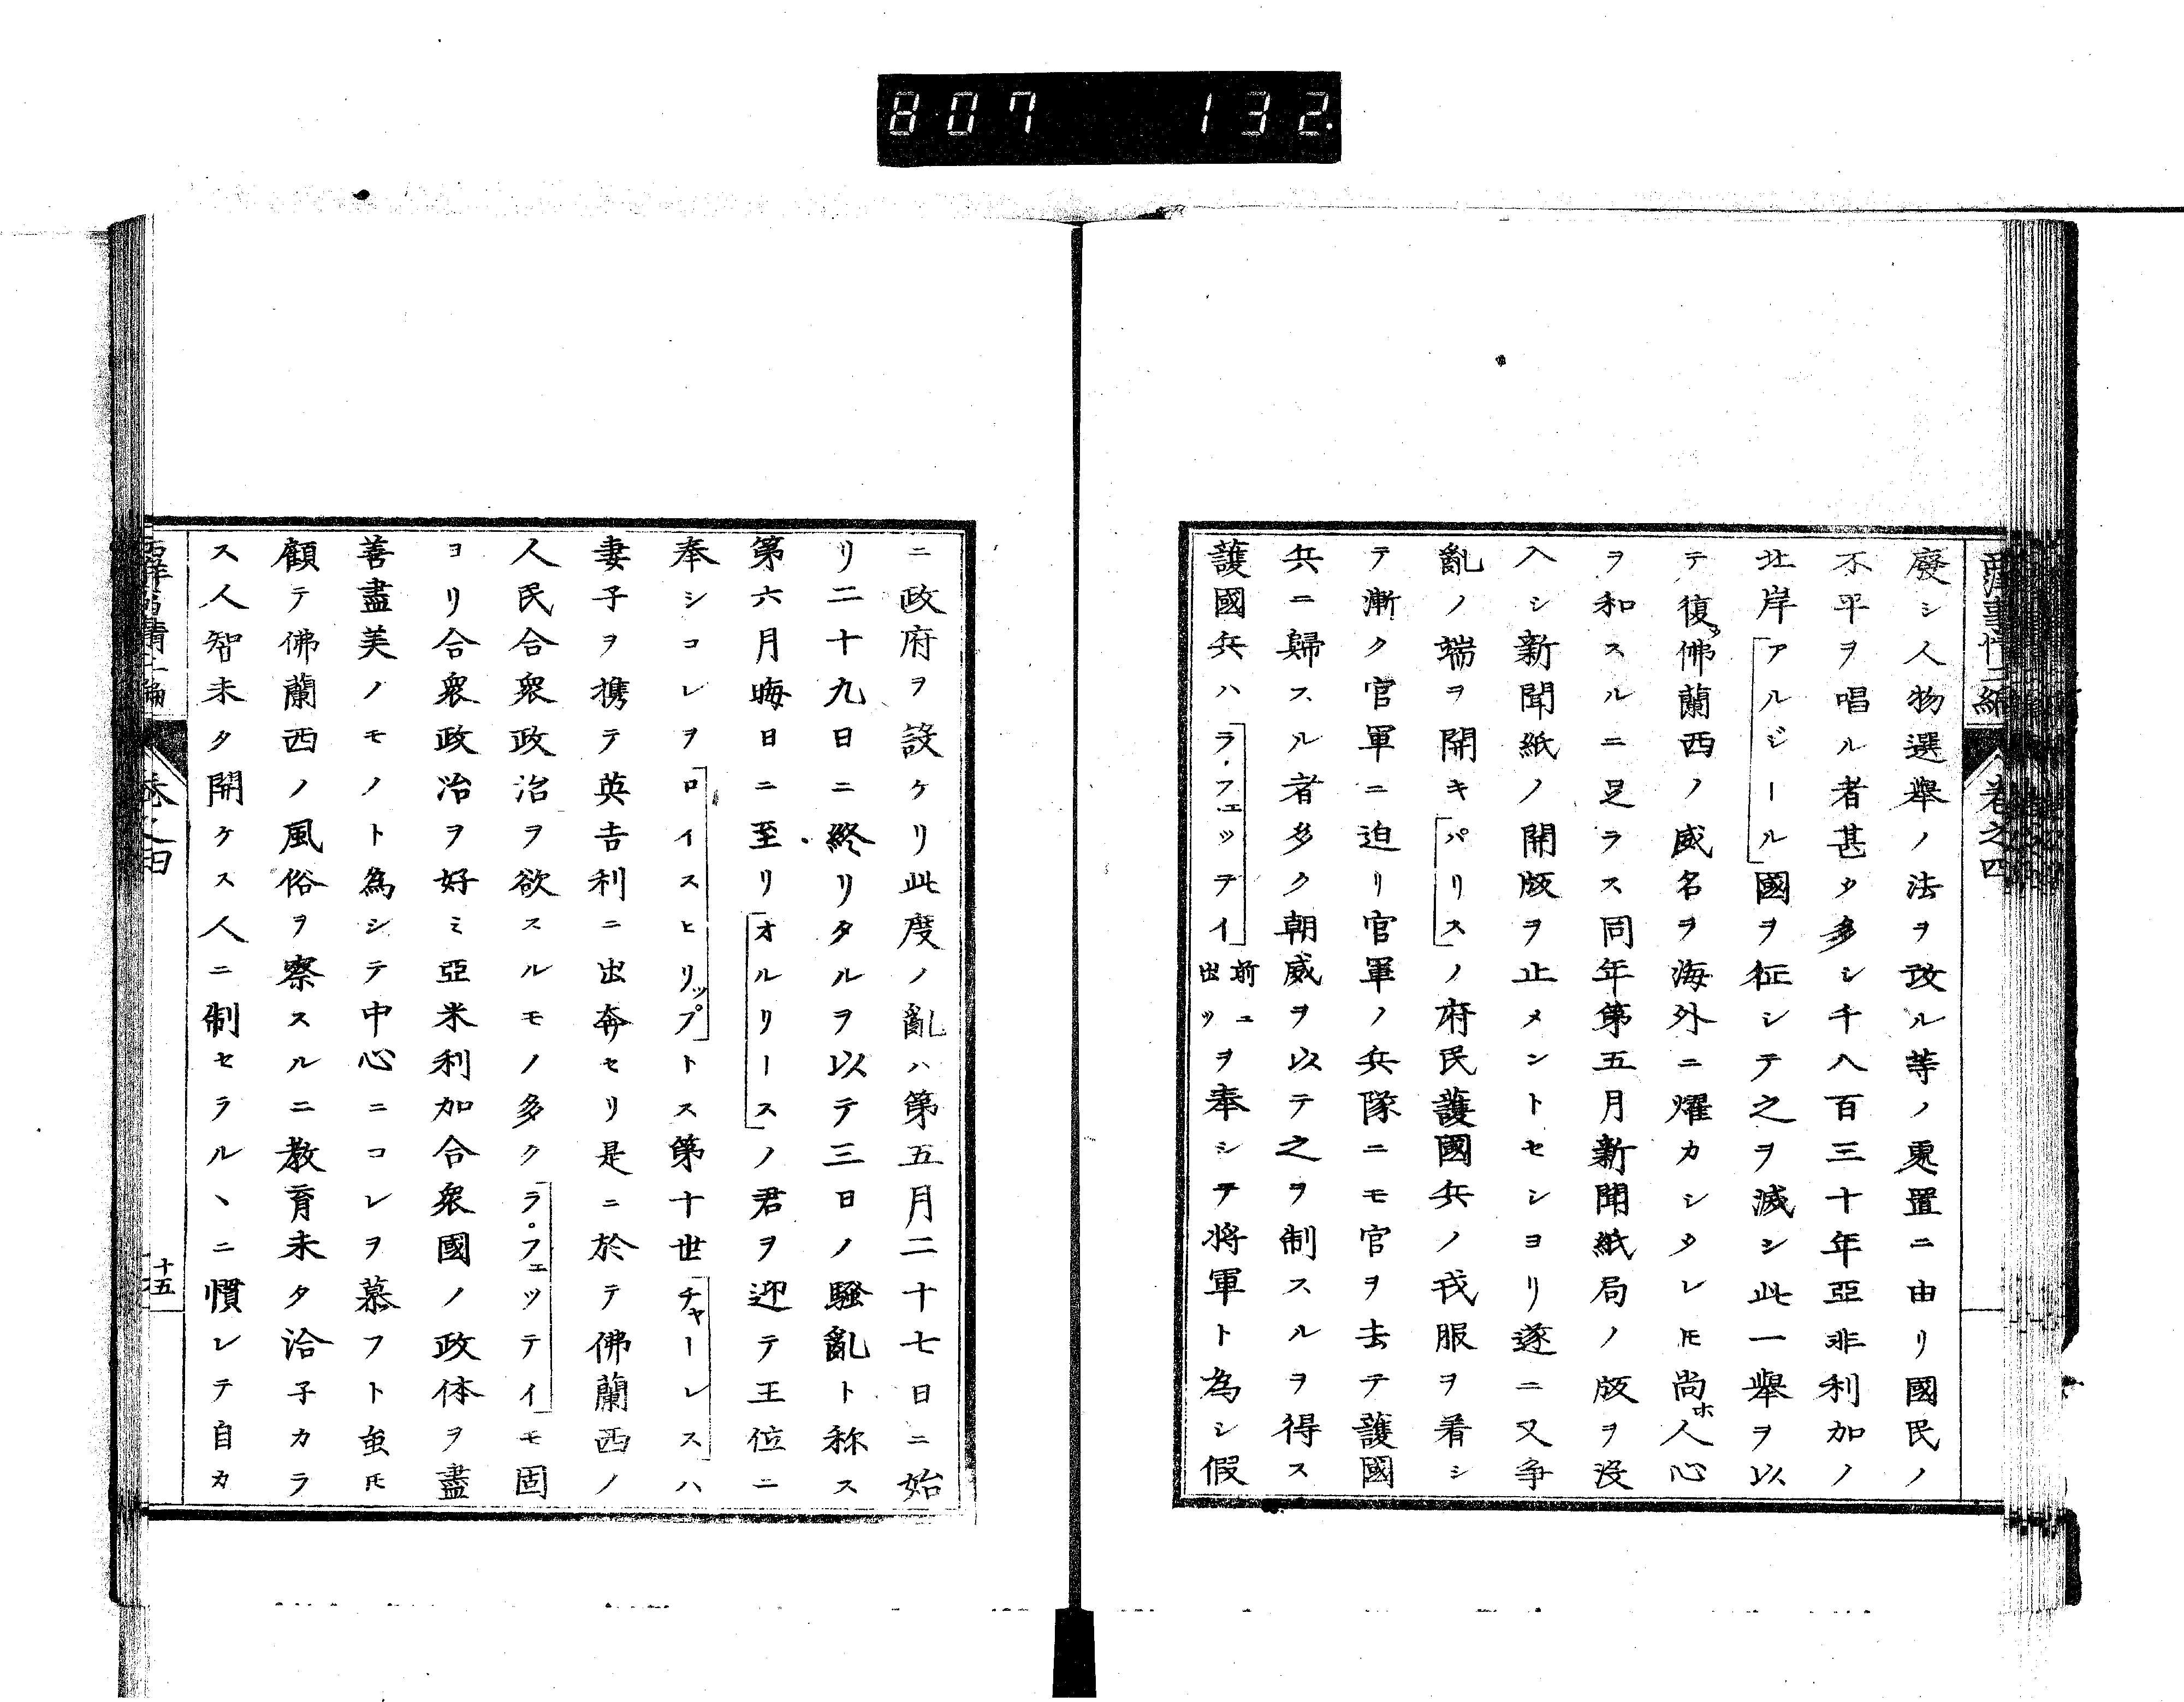 807 132
西洋事情二編 巻之四
廢シ人物選擧ノ法ヲ改ル等ノ處置ニ由リ國民ノ
不平ヲ唱ル者甚タ多シ千八百三十年亞非利加ノ
北岸アルジール國ヲ征シテ之ヲ滅シ此一擧ヲ以
テ復タ佛蘭西ノ威名ヲ海外ニ燿カシタレ𪜈尚ホ人心
ヲ和スルニ足ラス同年第五月新聞紙局ノ版ヲ沒
入シ新聞紙ノ開版ヲ止メントセシヨリ遂ニ又爭
亂ノ端ヲ開キパリスノ府民護國兵ノ戎服ヲ着シ
テ漸ク官軍ニ迫リ官軍ノ兵隊ニモ官ヲ去テ護國
兵ニ歸スル者多ク朝威ヲ以テ之ヲ制スルヲ得ス
護國兵ハラ・フェッテイ前ニ出ツヲ奉シテ將軍ト為シ假
ニ政府ヲ設ケリ此度ノ亂ハ第五月二十七日ニ始
リ二十九日ニ終リタルヲ以テ三日ノ騷亂ト称ス
第六月晦日ニ至リオルリースノ君ヲ迎テ王位ニ
奉シコレヲロイスヒリップトス第十世チャーレスハ
妻子ヲ携テ英吉利ニ出奔セリ是ニ於テ佛蘭西ノ
人民合衆政治ヲ欲スルモノ多クラ・フェッテイモ固
ヨリ合衆政治ヲ好ミ亞米利加合衆國ノ政体ヲ盡
善盡美ノモノト為シテ中心ニコレヲ慕フト虽𪜈
顧テ佛蘭西ノ風俗ヲ察スルニ教育未タ洽子カラ
ス人智未タ開ケス人ニ制セラルヽニ慣レテ自カ
西洋事情二編 巻之四 十五